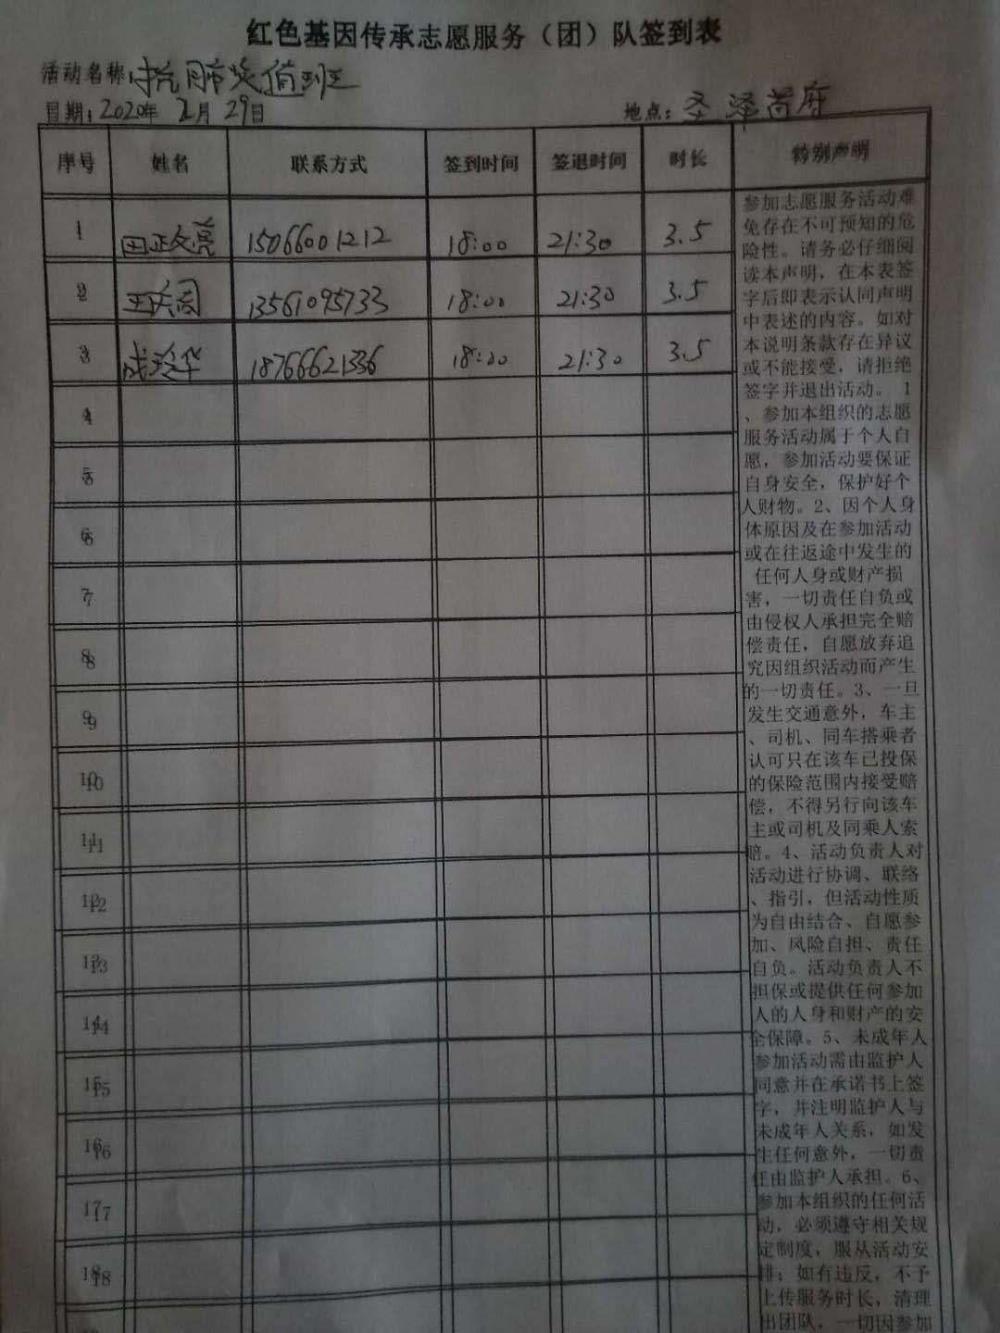 红色基因传承志愿服务（团）队签到表
活动名称：抗肺炎值班
日期：2020年 2月 29日 地点：圣泽首府
序号 姓名 联系方式 签到时间 签退时间 时长 特别声明
1 田正文亮 15066001212 18:00 21:30 3.5
2 王庆阁 13561095733 18:00 21:30 3.5
3 成玲华 18766621336 18:00 21:30 3.5
4
5
6
7
8
9
10
11
12
13
14
15
16
17
18
参加志愿服务活动难
免存在不可预知的危
险性。请务必仔细阅
读本声明，在本表签
字后即表示认同声明
中表述的内容。如对
本说明条款存在异议
或不能接受，请拒绝
签字并退出活动。 1
、参加本组织的志愿
服务活动属于个人自
愿，参加活动要保证
自身安全，保护好个
人财物。2、因个人身
体原因及在参加活动
或在往返途中发生的
任何人身或财产损
害，一切责任自负或
由侵权人承担完全赔
偿责任，自愿放弃追
究因组织活动而产生
的一切责任。3、一旦
发生交通意外，车主
、司机、同车搭乘者
认可只在该车已投保
的保险范围内接受赔
偿，不得另行向该车
主或司机及同乘人索
赔。4、活动负责人对
活动进行协调、联络
、指引，但活动性质
为自由结合、自愿参
加、风险自担、责任
自负。活动负责人不
担保或提供任何参加
人的人身和财产的安
全保障。5、未成年人
参加活动需由监护人
同意并在承诺书上签
字，并注明监护人与
未成年人关系，如发
生任何意外，一切责
任由监护人承担。6、
参加本组织的任何活
动，必须遵守相关规
定制度，服从活动安
排；如有违反，不予
上传服务时长，清理
出团队，一切因参加